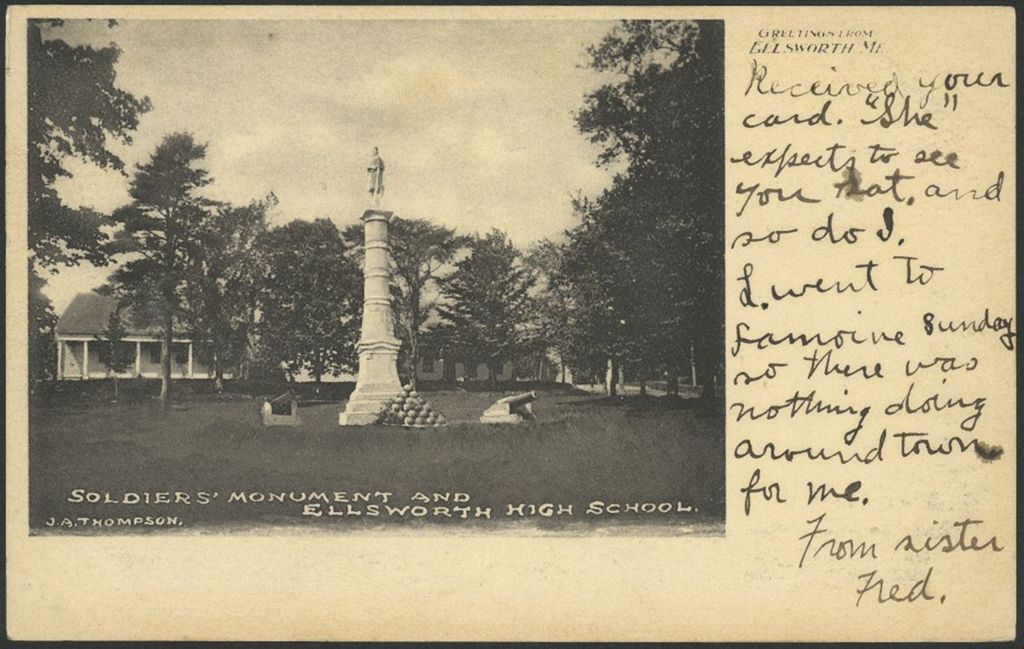 GREETINGS FROM
ELLSWORTH ME
Received your
card. "She"
expects to see
you Sat, and
so do I.
I went to
Lamoine Sunday
so there was
nothing doing
around town
for me.
From sister
Fred.
SOLDIERS' MONUMENT AND
ELLSWORTH HIGH SCHOOL.
J.A. THOMPSON.